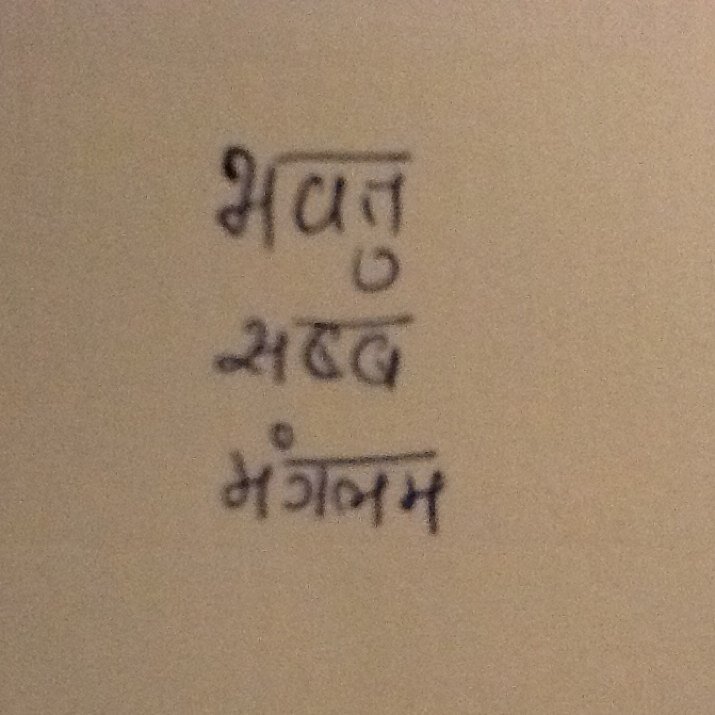 भवतु
सब्ब
मंगलम